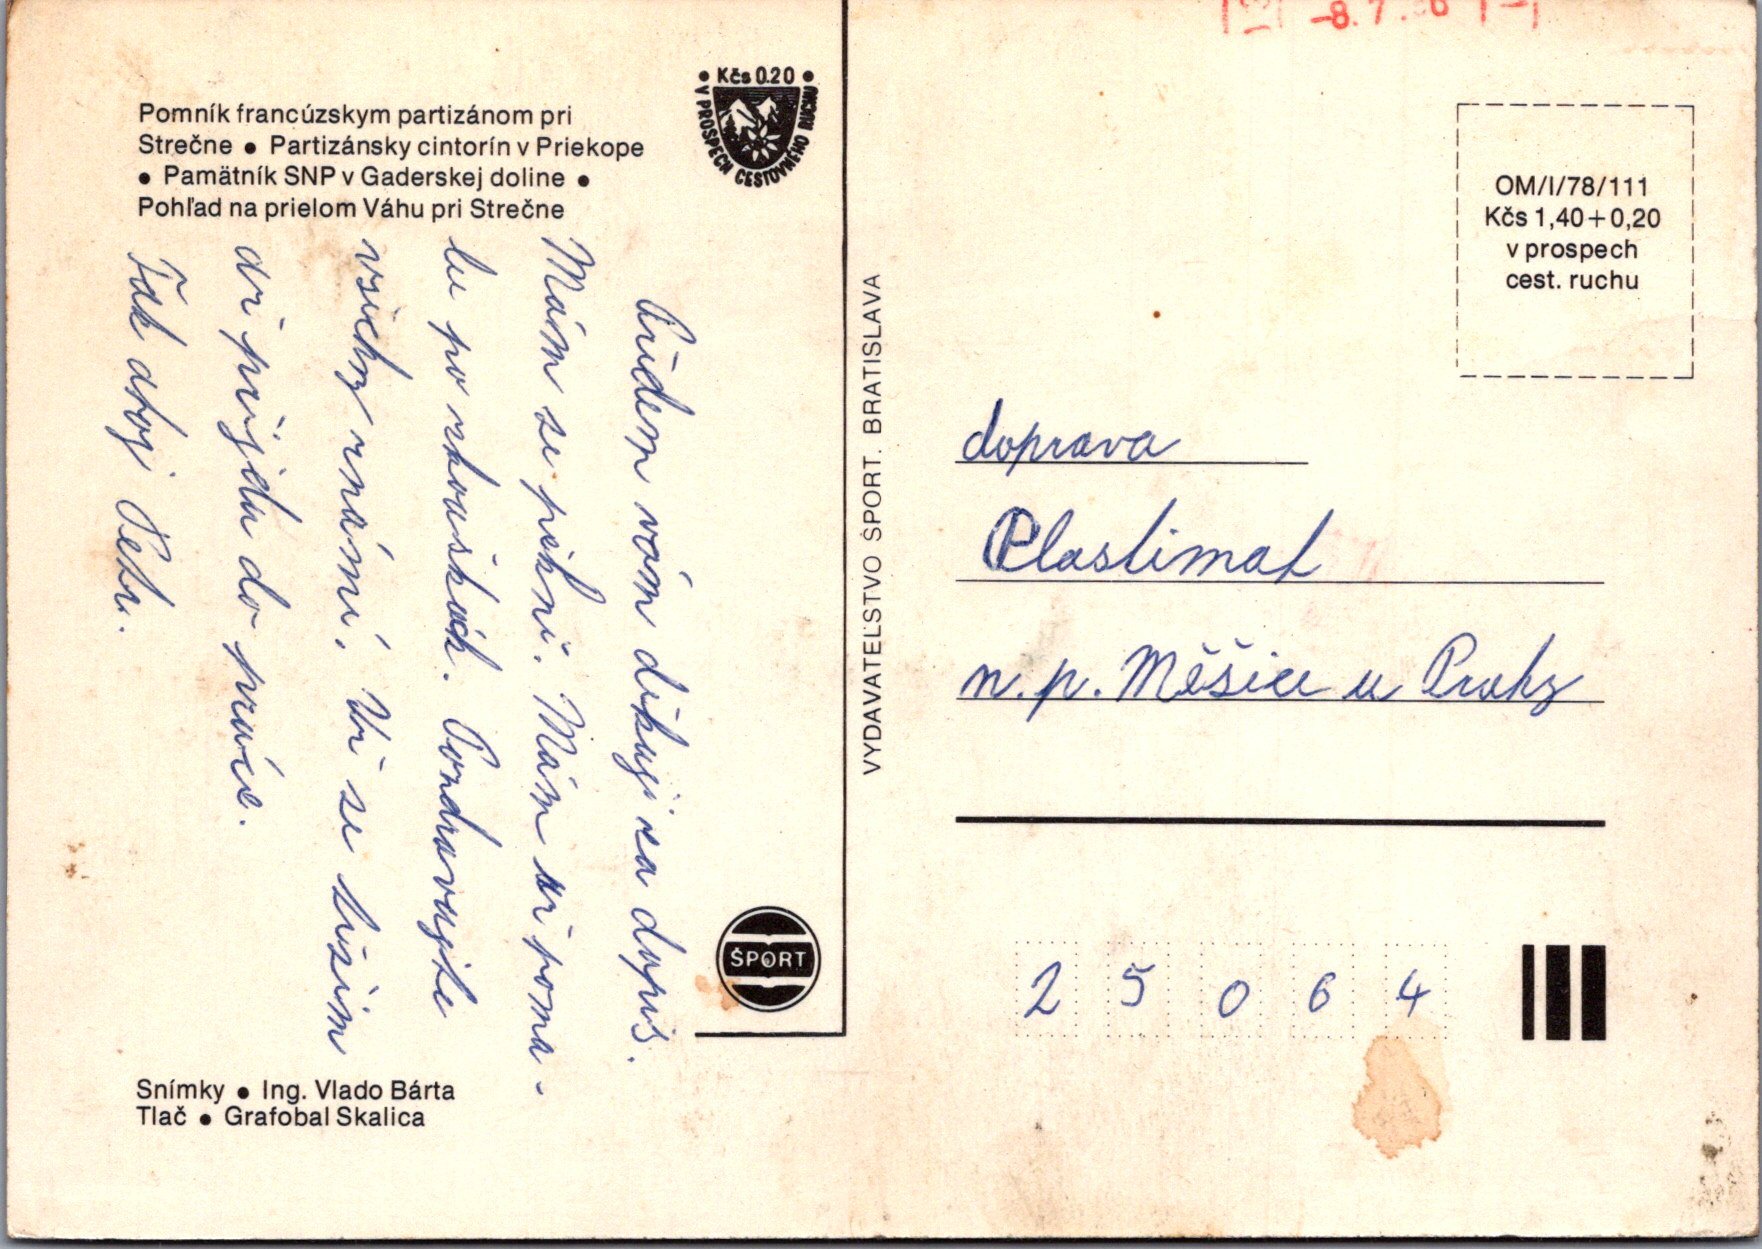 -8. 7.
Pomník francúzskym partizánom pri
Strečne • Partizánsky cintorín v Priekope
• Pamätník SNP v Gaderskej doline •
Pohľad na prielom Váhu pri Strečne
• Kčs 0.20 •
V PROSPECH CESTOVNÉHO RUCHU
Předem vám děkuji za dopis.
Mám se pěkně. Mám už poma-
lu po zkouškách. Pozdravujte
všechny známí. Už se těším
až přijdu do práce.
Fak ahoj Petr.
Snímky • Ing. Vlado Bárta
Tlač • Grafobal Skalica
ŠPORT
VYDAVATEĽSTVO ŠPORT. BRATISLAVA
OM/I/78/111
Kčs 1,40+0,20
v prospech
cest. ruchu
doprava
Plastimat
n.p. Měšice u Prahy
2 5 0 6 4